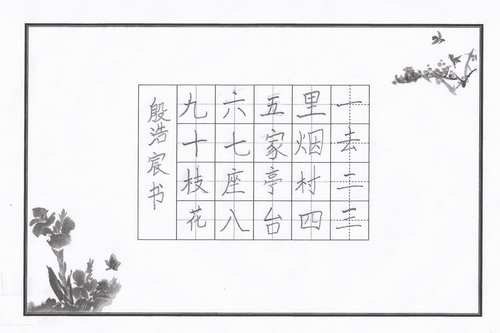 一去二三
里烟村四
五家亭台
六七座八
九十枝花
殷浩宸书